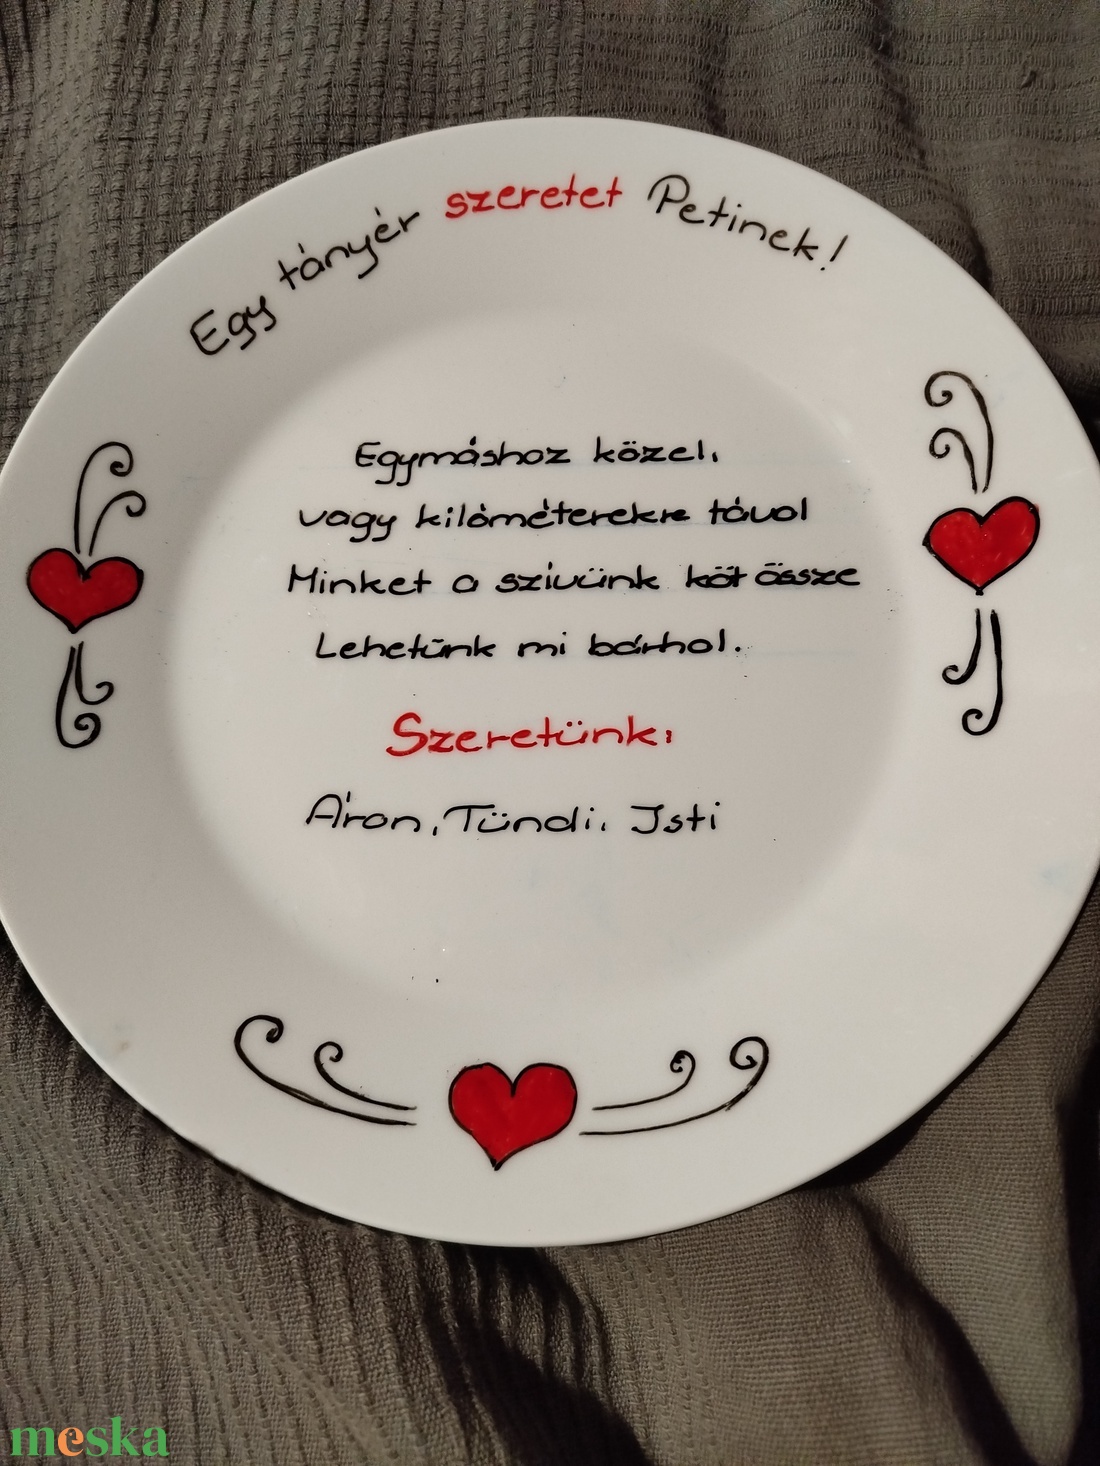 Egy tányér szeretet Petinek!
Egymáshoz közel,
vagy kilóméterekre távol
Minket a szívünk köt össze
Lehetünk mi bárhol.
Szeretünk:
Áron, Tündi, Isti
meska